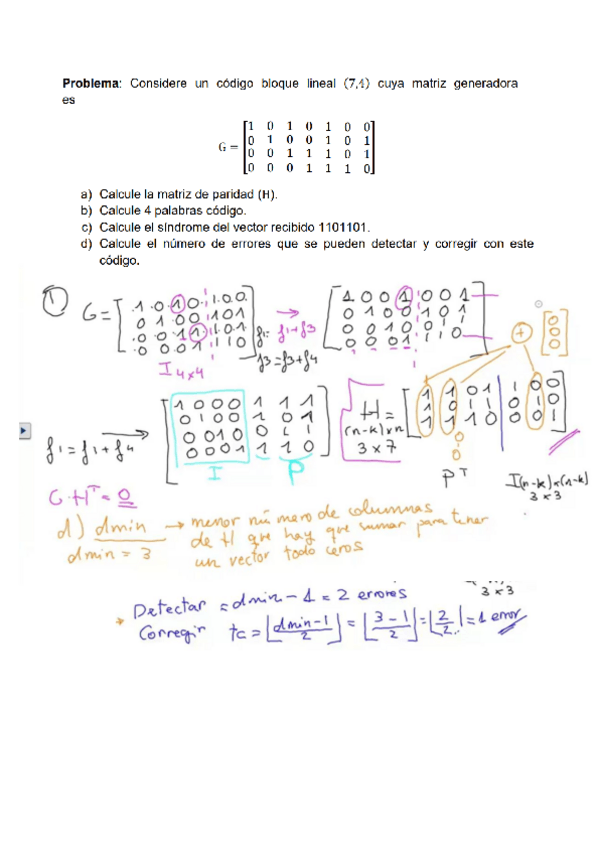 Problema: Considere un código bloque lineal (7,4) cuya matriz generadora
es
G = [1 0 1 0 1 0 0
0 1 0 0 1 0 1
0 0 1 1 1 0 1
0 0 0 1 1 1 0]
a) Calcule la matriz de paridad (H).
b) Calcule 4 palabras código.
c) Calcule el síndrome del vector recibido 1101101.
d) Calcule el número de errores que se pueden detectar y corregir con este
código.
① G = [1 0 1 0 1 0 0
0 1 0 0 1 0 1
0 0 1 1 1 0 1
0 0 0 1 1 1 0]
I 4x4
f1 = f1+f3
f3 = f3+f4
[1 0 0 1 0 0 1
0 1 0 0 1 0 1
0 0 1 0 0 1 1
0 0 0 1 1 1 0]
+ [0
0
0]
f1 = f1 + f4
[1 0 0 0 1 1 1
0 1 0 0 1 0 1
0 0 1 0 0 1 1
0 0 0 1 1 1 0]
I P
H =
(n-k)xn
3 x 7
[1 1 0 1 1 0 0
1 0 1 1 0 1 0
1 1 1 0 0 0 1]
P T
I(n-k)x(n-k)
3x3
G·Hᵀ = 0
d) dmin → menor número de columnas
de H que hay que sumar para tener
un vector todo ceros
dmin = 3
3x3
Detectar = dmin - 1 = 2 errores
Corregir tc = ⌊dmin-1/2⌋ = ⌊3-1/2⌋ = ⌊2/2⌋ = 1 error